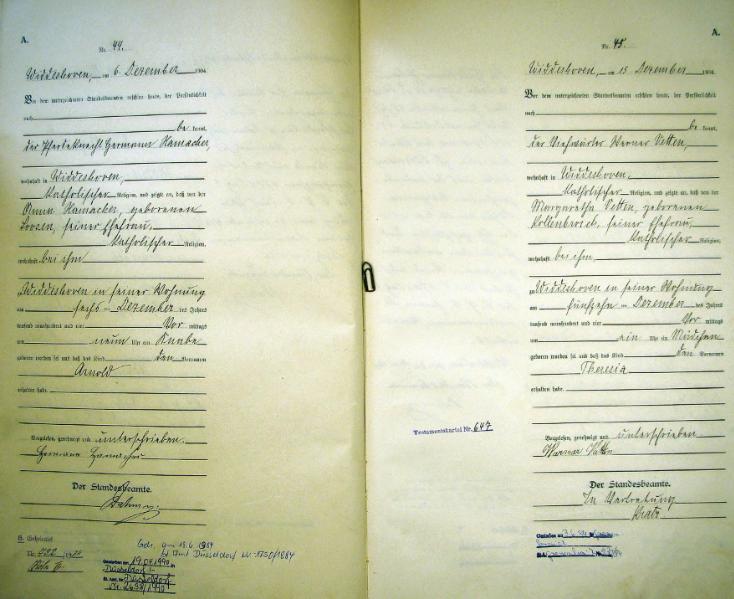 A.
Nr. 44.
Widdeshoven, am 6 Dezember 1904
Vor dem unterzeichneten Standesbeamten erschien heute, der Persönlichkeit
nach
be kannt,
der Pferdeknecht Hermann Hamacher,
wohnhaft in Widdeshoven,
Katholischer Religion, und zeigte an, daß von der
Hamacher, geborenen
seiner Ehefrau,
Katholischer Religion,
wohnhaft bei ihm
zu Widdeshoven in seiner Wohnung
am sechs ten Dezember des Jahres
tausend neunhundert und vier Vor mittags
um neun Uhr ein Knabe
geboren worden sei und daß das Kind den Vornamen
Arnold
erhalten habe.
Vorgelesen, genehmigt und unterschrieben.
Hermann Hamacher
Der Standesbeamte.
Nr. 222
Geb. am 18.6. 1984
Düsseldorf
Düsseldorf
A.
Nr. 45.
Widdeshoven, am 15 Dezember 1904
Vor dem unterzeichneten Standesbeamten erschien heute, der Persönlichkeit
nach
be kannt,
der Viehwärter Werner Vetten,
wohnhaft in Widdeshoven,
Katholischer Religion, und zeigte an, daß von der
Margaretha Vetten, geborenen
seiner Ehefrau,
Katholischer Religion,
wohnhaft bei ihm
zu Widdeshoven in seiner Wohnung
am fünfzehn ten Dezember des Jahres
tausend neunhundert und vier Vor mittags
um ein Uhr ein Mädchen
geboren worden sei und daß das Kind den Vornamen
Theresia
erhalten habe.
Testamentskartei Nr. 647
Vorgelesen, genehmigt und unterschrieben
Werner Vetten
Der Standesbeamte.
In Vertretung